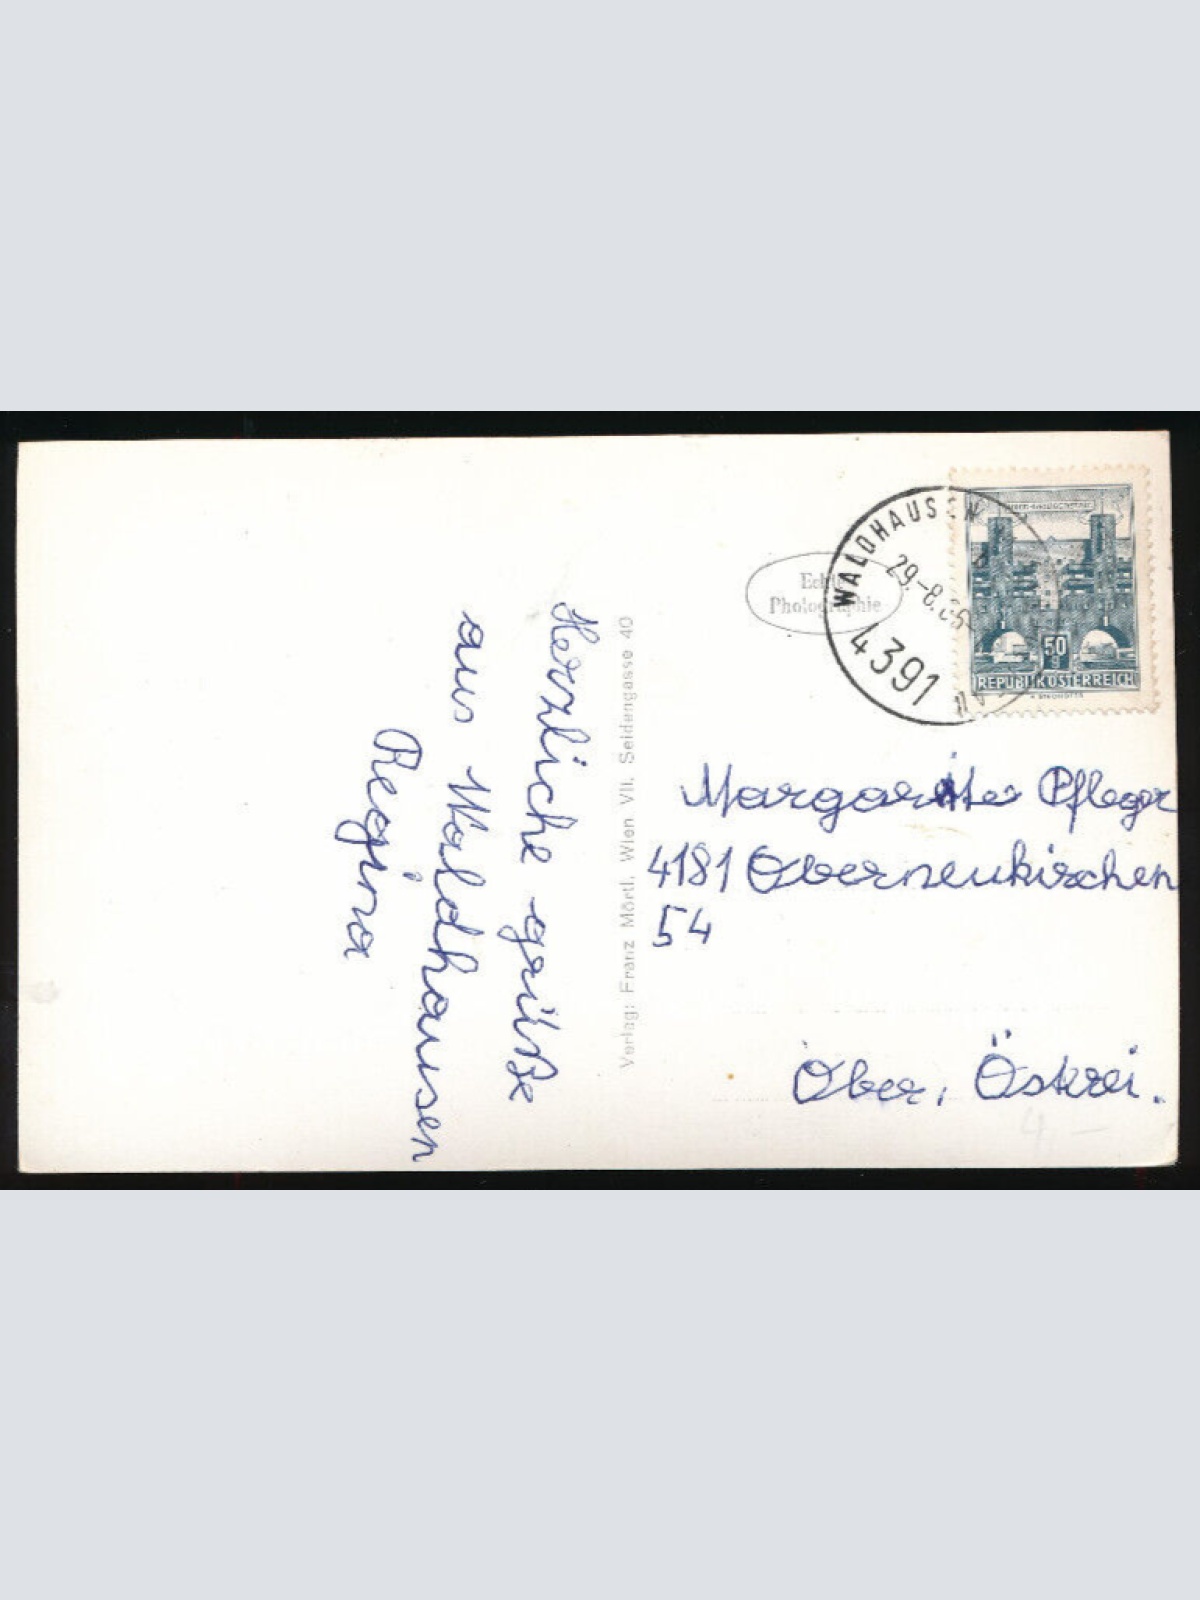 Herzliche grüße
aus Waldhausen
Regina
Verlag: Franz Mörtl, Wien VII. Seidengasse 40
Echte
Photographie
WALDHAUSEN
29.-8.
4391
50
g
REPUBLIK ÖSTERREICH
Margarite Pfleger
4181 Oberneukirchen
54
Ober, Östrei.
4,-